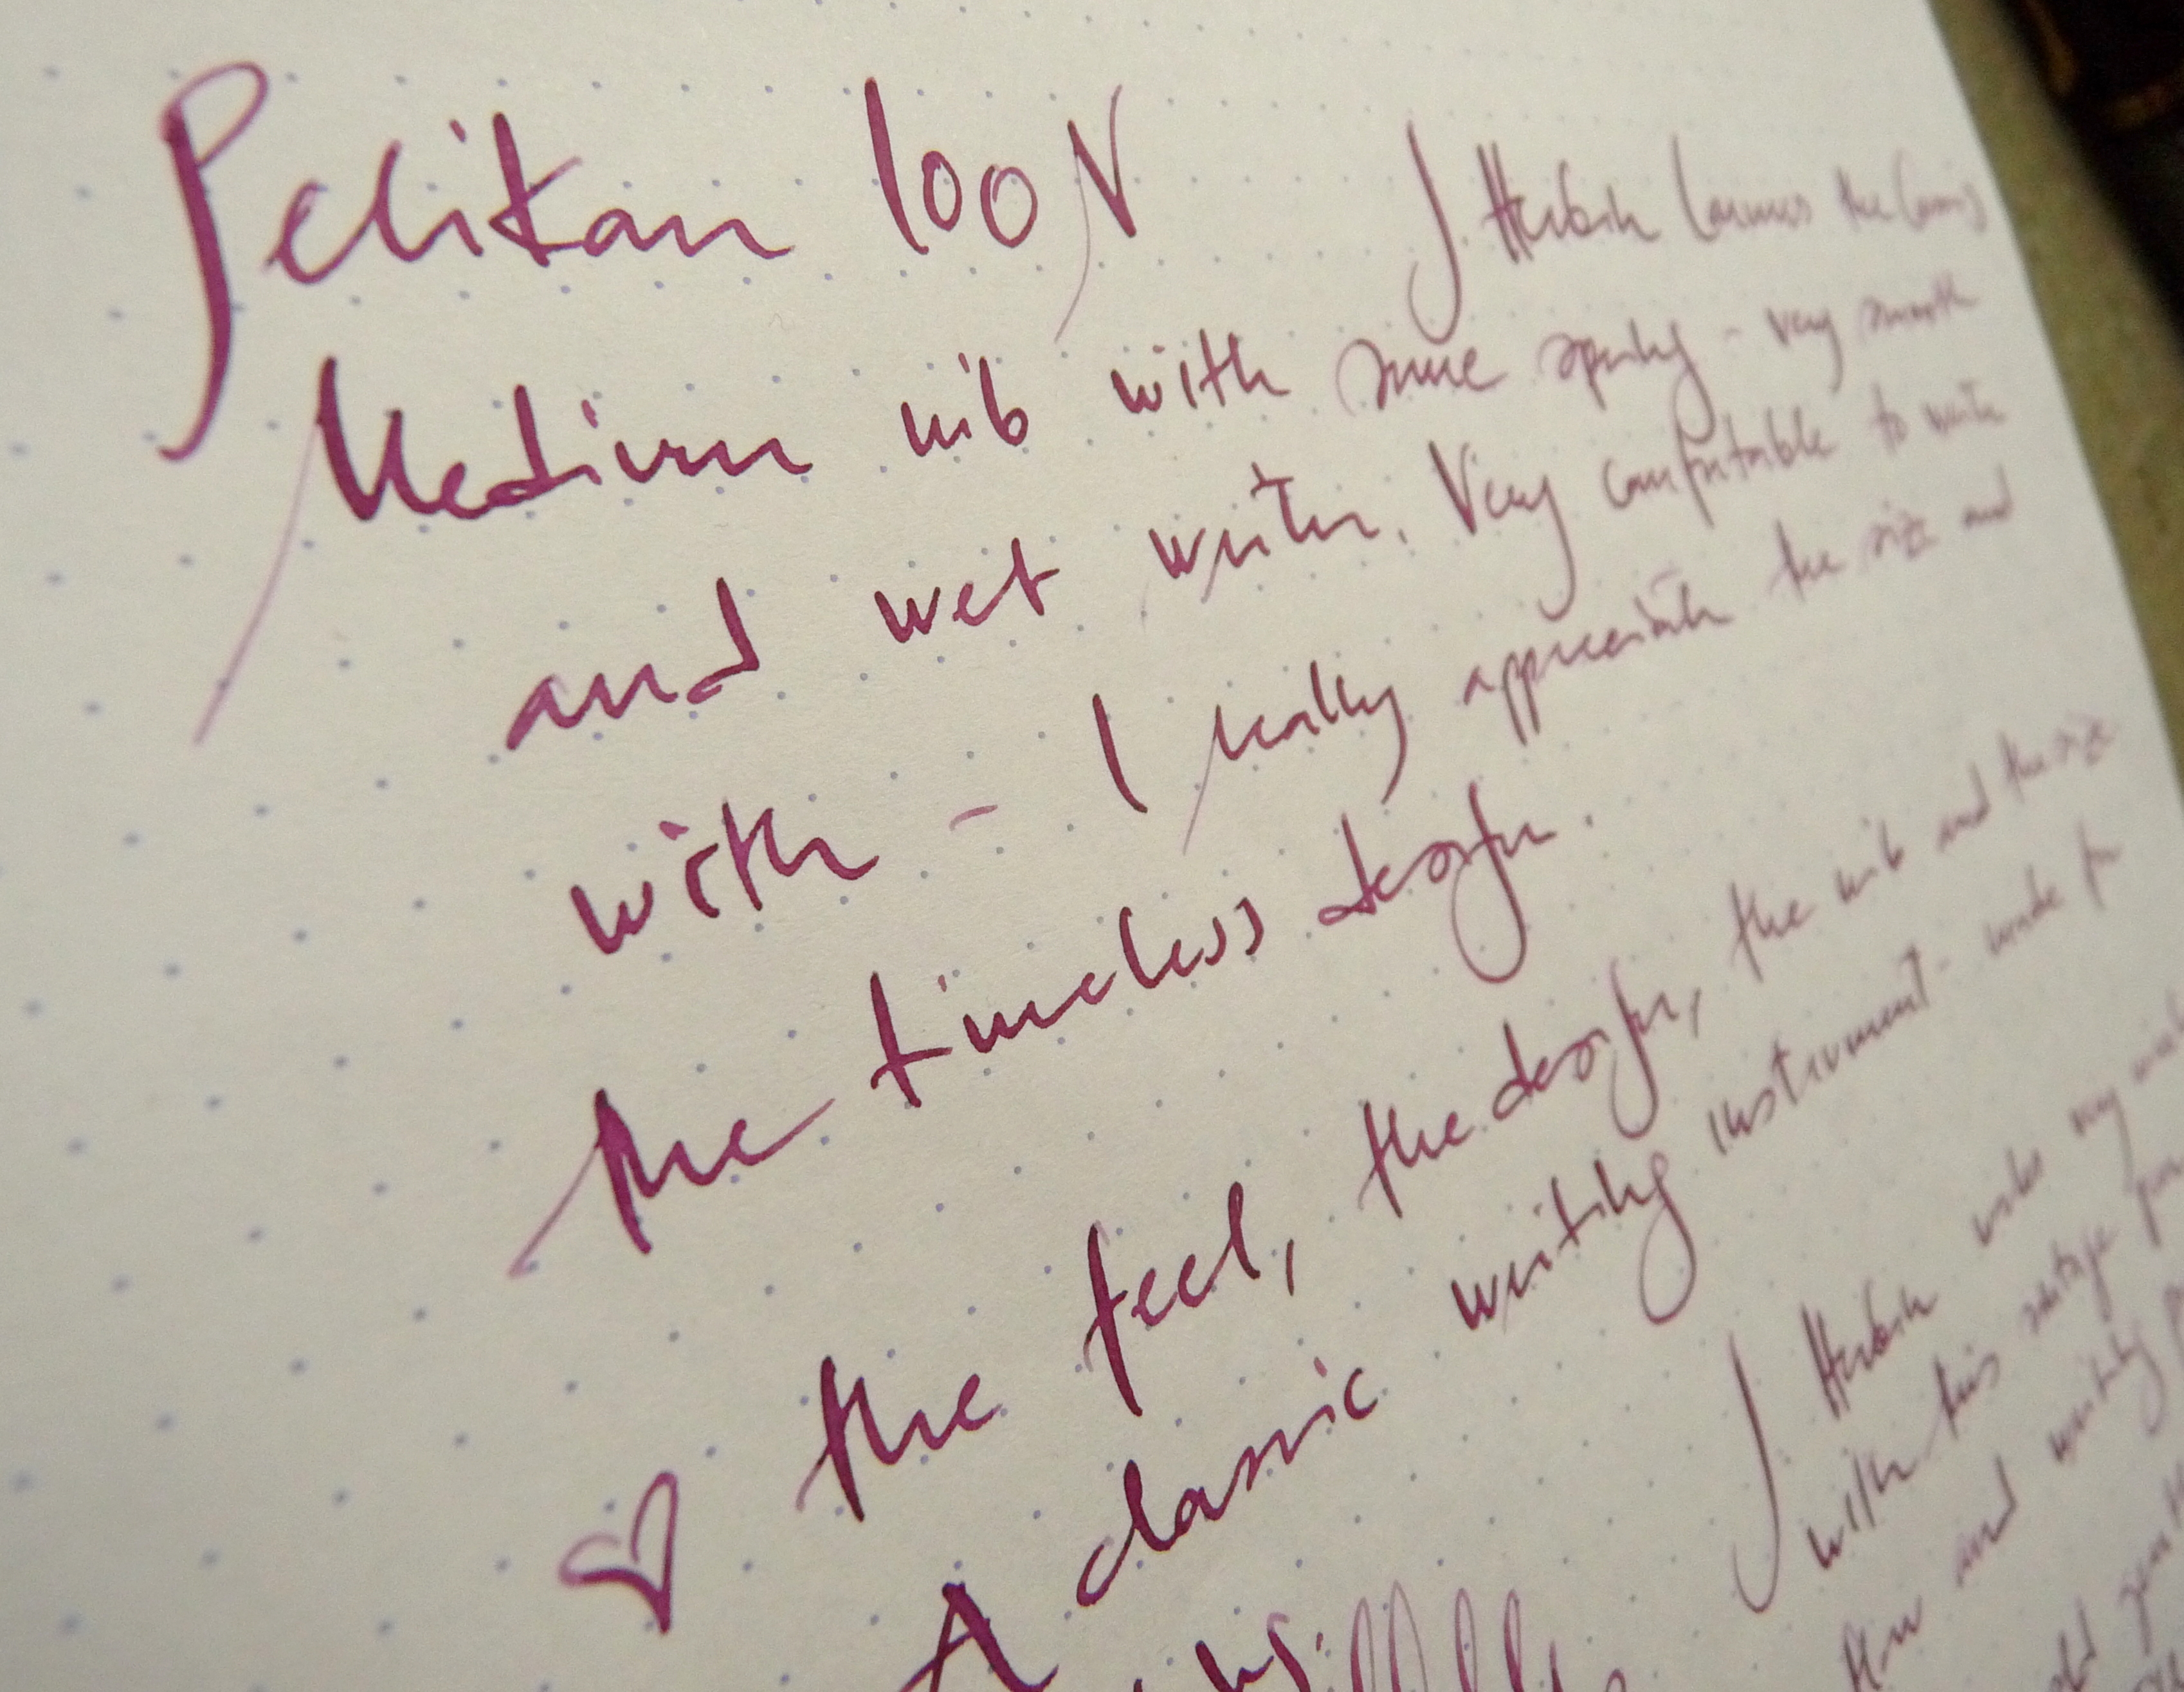 Pelikan 100N J. Herbin Larmes de Cassis
Medium nib with some spring - very smooth
and wet writer. Very comfortable to write
with - I really appreciate the size and
the timeless design.
♡ the feel, the design, the nib and the size
A classic writing instrument - made for
J Herbin works very
with this vintage
flow and writing
old